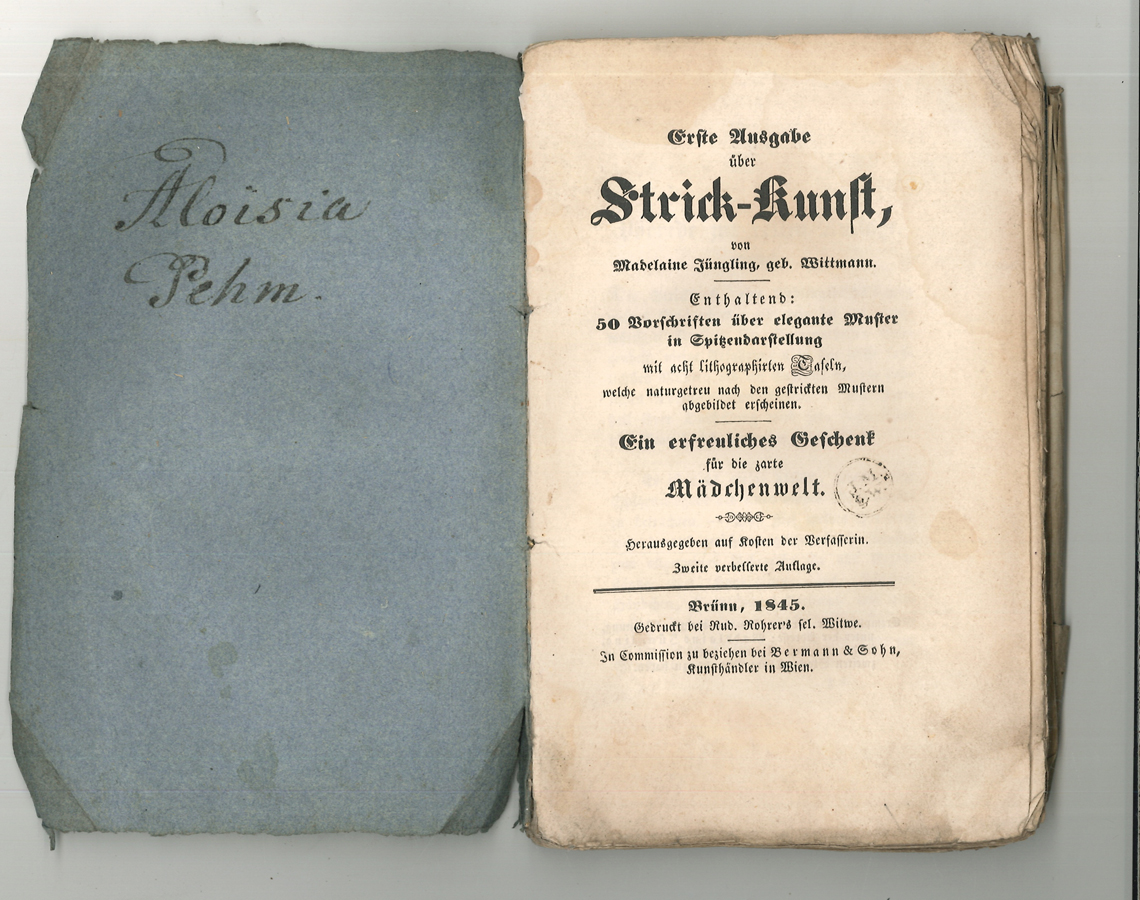 Aloisia
Pehm.
Erste Ausgabe
über
Strick-Kunst,
von
Madelaine Jüngling, geb. Wittmann.
Enthaltend:
50 Vorschriften über elegante Muster
in Spitzendarstellung
mit acht lithographirten Tafeln,
welche naturgetreu nach den gestrickten Mustern
abgebildet erscheinen.
Ein erfreuliches Geschenk
für die zarte
Mädchenwelt.
Herausgegeben auf Kosten der Verfasserin.
Zweite verbesserte Auflage.
Brünn, 1845.
Gedruckt bei Rud. Rohrer's sel. Witwe.
In Commission zu beziehen bei Bermann & Sohn,
Kunsthändler in Wien.